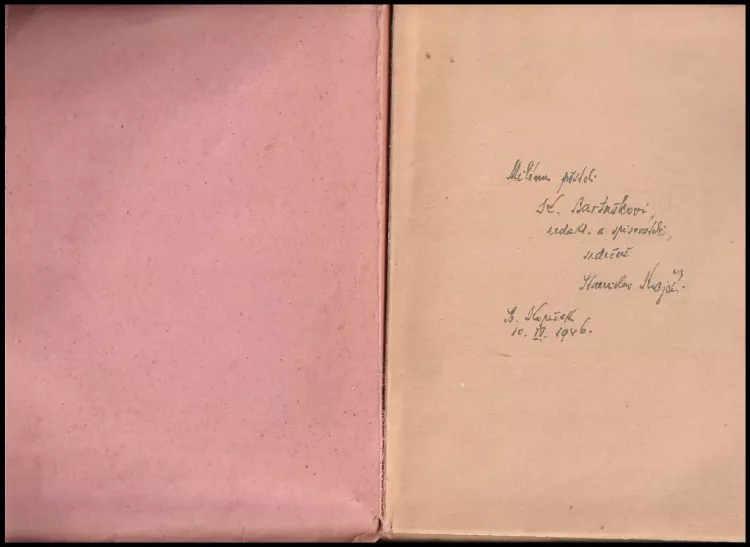 Milému příteli
St. Bartůškovi,
redakt. a spisovateli,
srdečně
Stanislav Krajčí
10. IV. 1946.